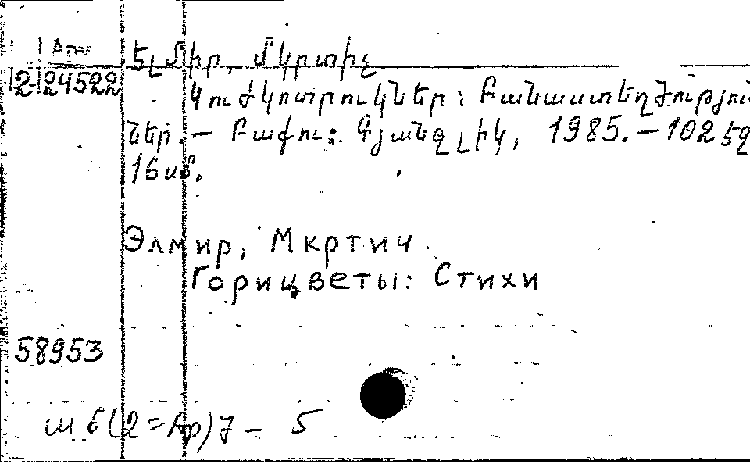 Ելմիր, Մկրտիչ
2-24522
Կուժկոտրուկներ: Բանաստեղծություն
ներ. — Բաքու: Գյանջլիկ, 1985. — 102 էջ
16 սմ.
Элмир, Мкртич
Горицветы: Стихи
58953
ш 6(2=Ар)7 — 5